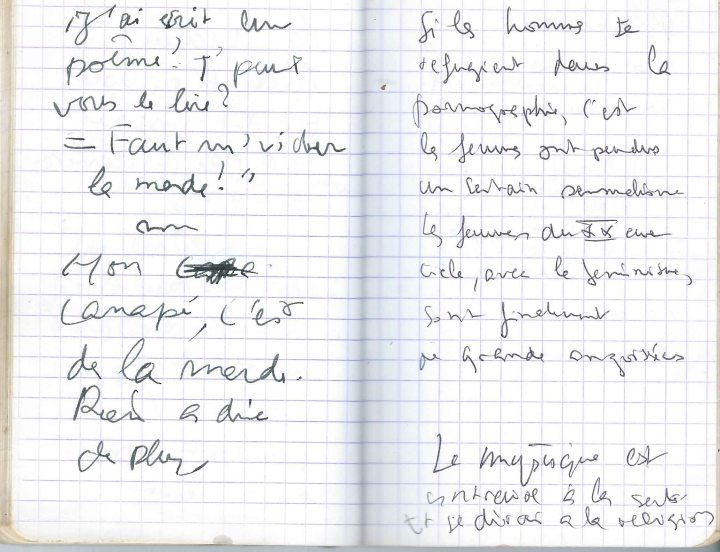 "J'ai écrit un
poême! J'peux
vous le lire?
= Faut m'vider
la merde!"
Mon
canapé, c'est
de la merde.
Rien a dire
de plus
Si les hommes se
refugient dans la
pornographie, c'est
les femmes ont perdus
un certain sensualisme
les femmes du XX eme
siecle, avec le feminisme,
sont finalement
de grande angoissées
Le mystique est
à la
je dirai a la religion